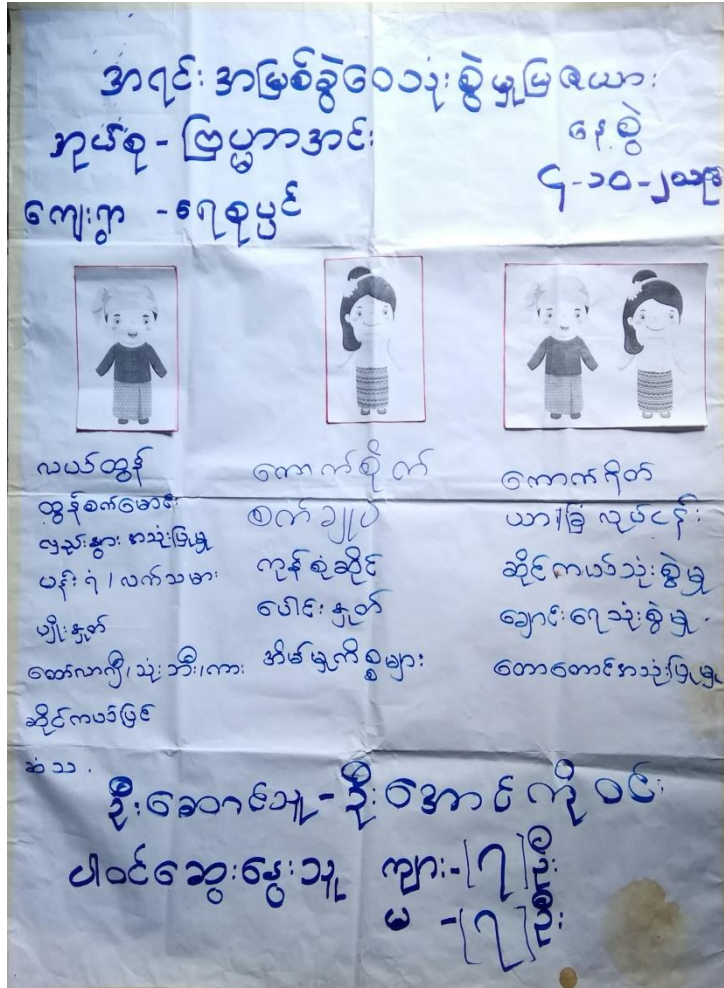 အရင်းအမြစ်ခွဲဝေသုံးစွဲမှုပြဇယား
အုပ်စု - ဗြဟ္မာအင်း
နေ့စွဲ
၄-၁၀-၂၀၁၉
ကျေးရွာ - ရေစုပွင်
လယ်ထွန်
ထွန်စက်မောင်း
လှည်းနွား အသုံးပြုမှု
ပန်းရံ / လက်သမား
ပျိုးနှုတ်
ထော်လာဂျီ / သုံးဘီး / ကား
ဆိုင်ကယ်ပြင်
ဆံသ
ကောက်စိုက်
စက်ချုပ်
ကုန်စုံဆိုင်
ပေါင်းနှုတ်
အိမ်မှုကိစ္စများ
ကောက်ရိတ်
ယာ/ခြံ လုပ်ငန်း
ဆိုင်ကယ်သုံးစွဲမှု
ချောင်းရေသုံးစွဲမှု
တောတောင်အသုံးပြုမှု
ဦးဆောင်သူ - ဦးအောင်ကိုဝင်း
ပါဝင်ဆွေးနွေးသူ ကျား - (၇)ဦး
မ - (၇)ဦး